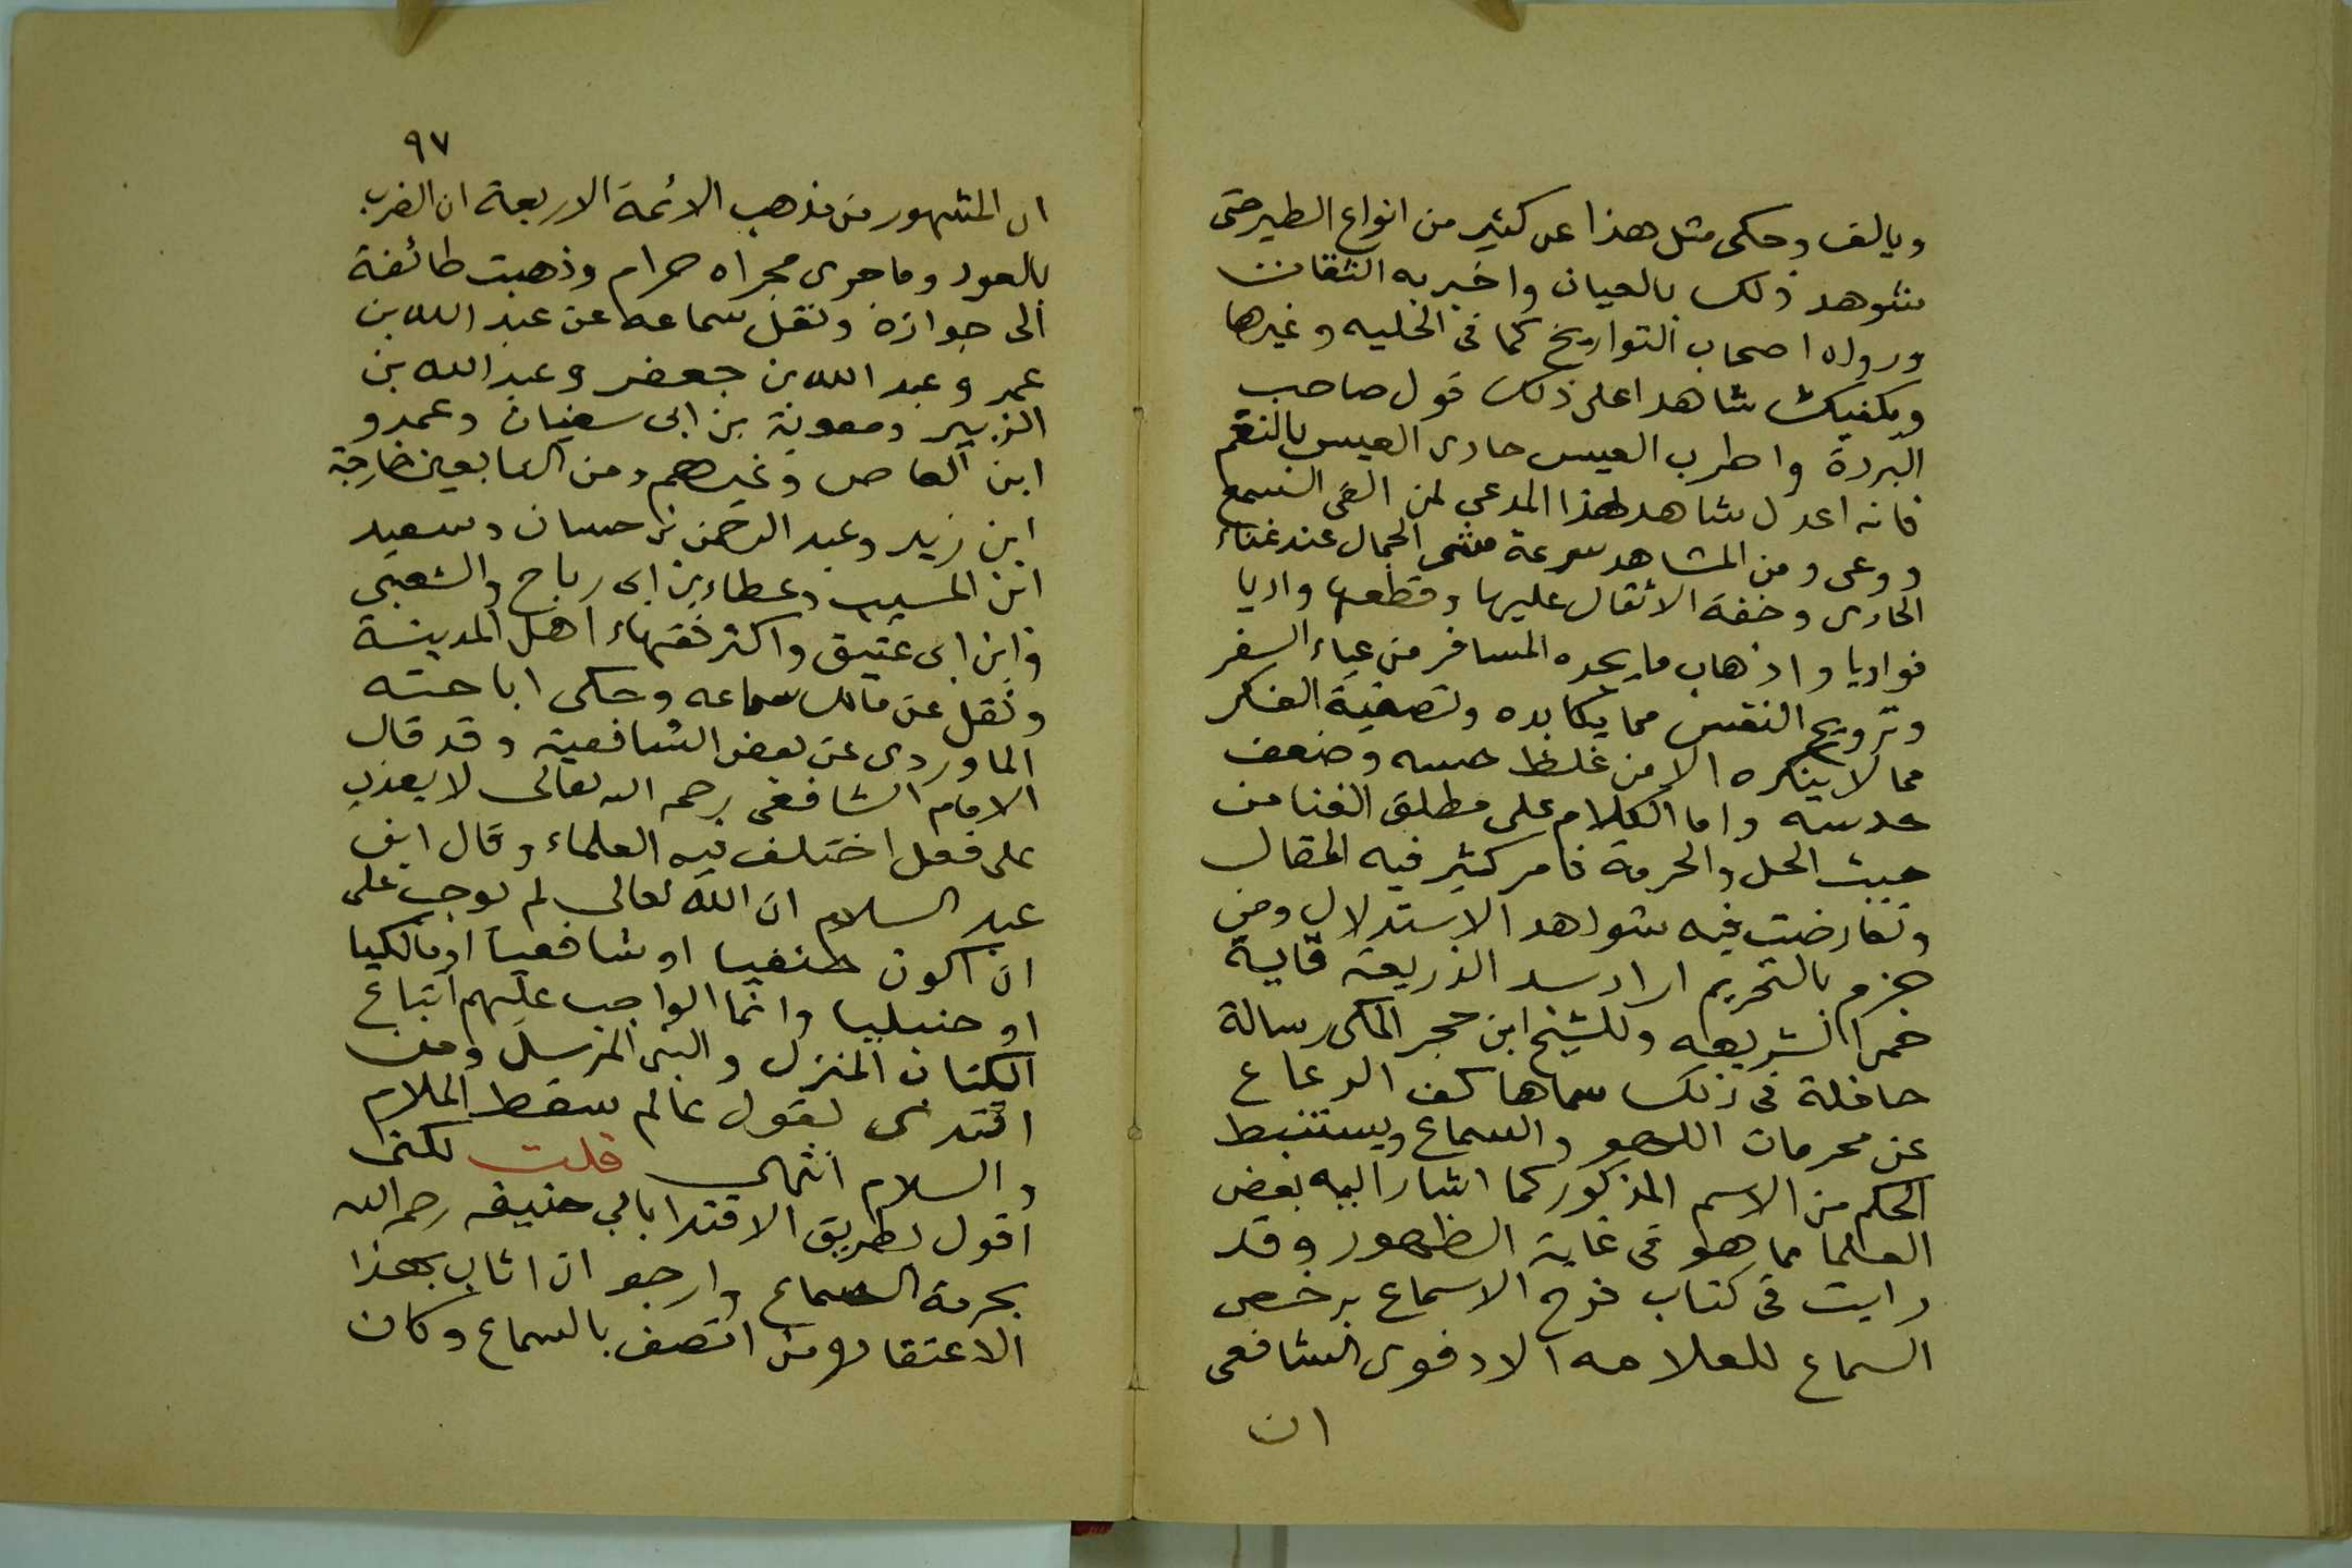 ويالف وحكى مثل هذا عن كثير من انواع الطير حتى
شوهد ذلك بالعيان واخبر به الثقات
ورواه اصحاب التواريخ كما في الحليه وغيرها
ويكفيك شاهدا على ذلك قول صاحب
البردة واطرب العيس حادى العيس بالنغم
فانه اعدل شاهد لهذا المدعى لمن القى السمع
ووعى ومن المشاهد سرعة مشى الجمال عند غناء
الحادى وخفة الاثقال عليها وقطعها واديا
فواديا واذهاب ما يجده المسافر من عياء السفر
وترويح النفس مما يكابده وتصفية الفكر
مما لا ينكره الا من غلظ حسه وضعف
حدسه واما الكلام على مطلق الغنا من
حيث الحل والحرمة فامر كثير فيه المقال
وتعارضت فيه شواهد الاستدلال ومن
جزم بالتحريم اراد سد الذريعة
حمى الشريعه وللشيخ ابن حجر المكى رسالة
حافلة فى ذلك سماها كف الرعاع
عن محرمات اللهو والسماع ويستنبط
الحكم من الاسم المذكور كما اشار اليه بعض
العلما مما هو فى غاية الظهور وقد
رايت فى كتاب فرح الاسماع برخص
السماع للعلامه الادفوى الشافعى
ان
٩٧
ان المشهور من مذهب الائمة الاربعة ان الضرب
بالعود وما جرى مجراه حرام وذهبت طائفة
الى جوازه ونقل سماعه عن عبد الله بن
عمر وعبد الله بن جعفر وعبد الله بن
الزبير ومعوية بن ابى سفيان وعمرو
ابن العاص وغيرهم ومن التابعين خارجة
ابن زيد وعبد الرحمن بن حسان وسعيد
ابن المسيب وعطاء بن ابى رباح والشعبى
وابن ابى عتيق واكثر فقهاء اهل المدينة
ونقل عن مالك سماعه وحكى اباحته
الماوردى عن بعض الشافعية وقد قال
الامام الشافعى رحمه الله تعالى لا يعذب
على فعل اختلف فيه العلماء وقال ابن
عبد السلام ان الله تعالى لم يوجب على
ان اكون حنفيا او شافعيا او مالكيا
او حنبليا وانما الواجب عليهم اتباع
الكتاب المنزل والنبى المرسل ومن
اقتدى بقول عالم سقط الملام
والسلام انتهى قلت لكنى
اقول بطريق الاقتدا بابي حنيفه رحمه الله
بحرمة السماع وارجو ان اثاب بهذا
الاعتقاد ومن اتصف بالسماع وكان